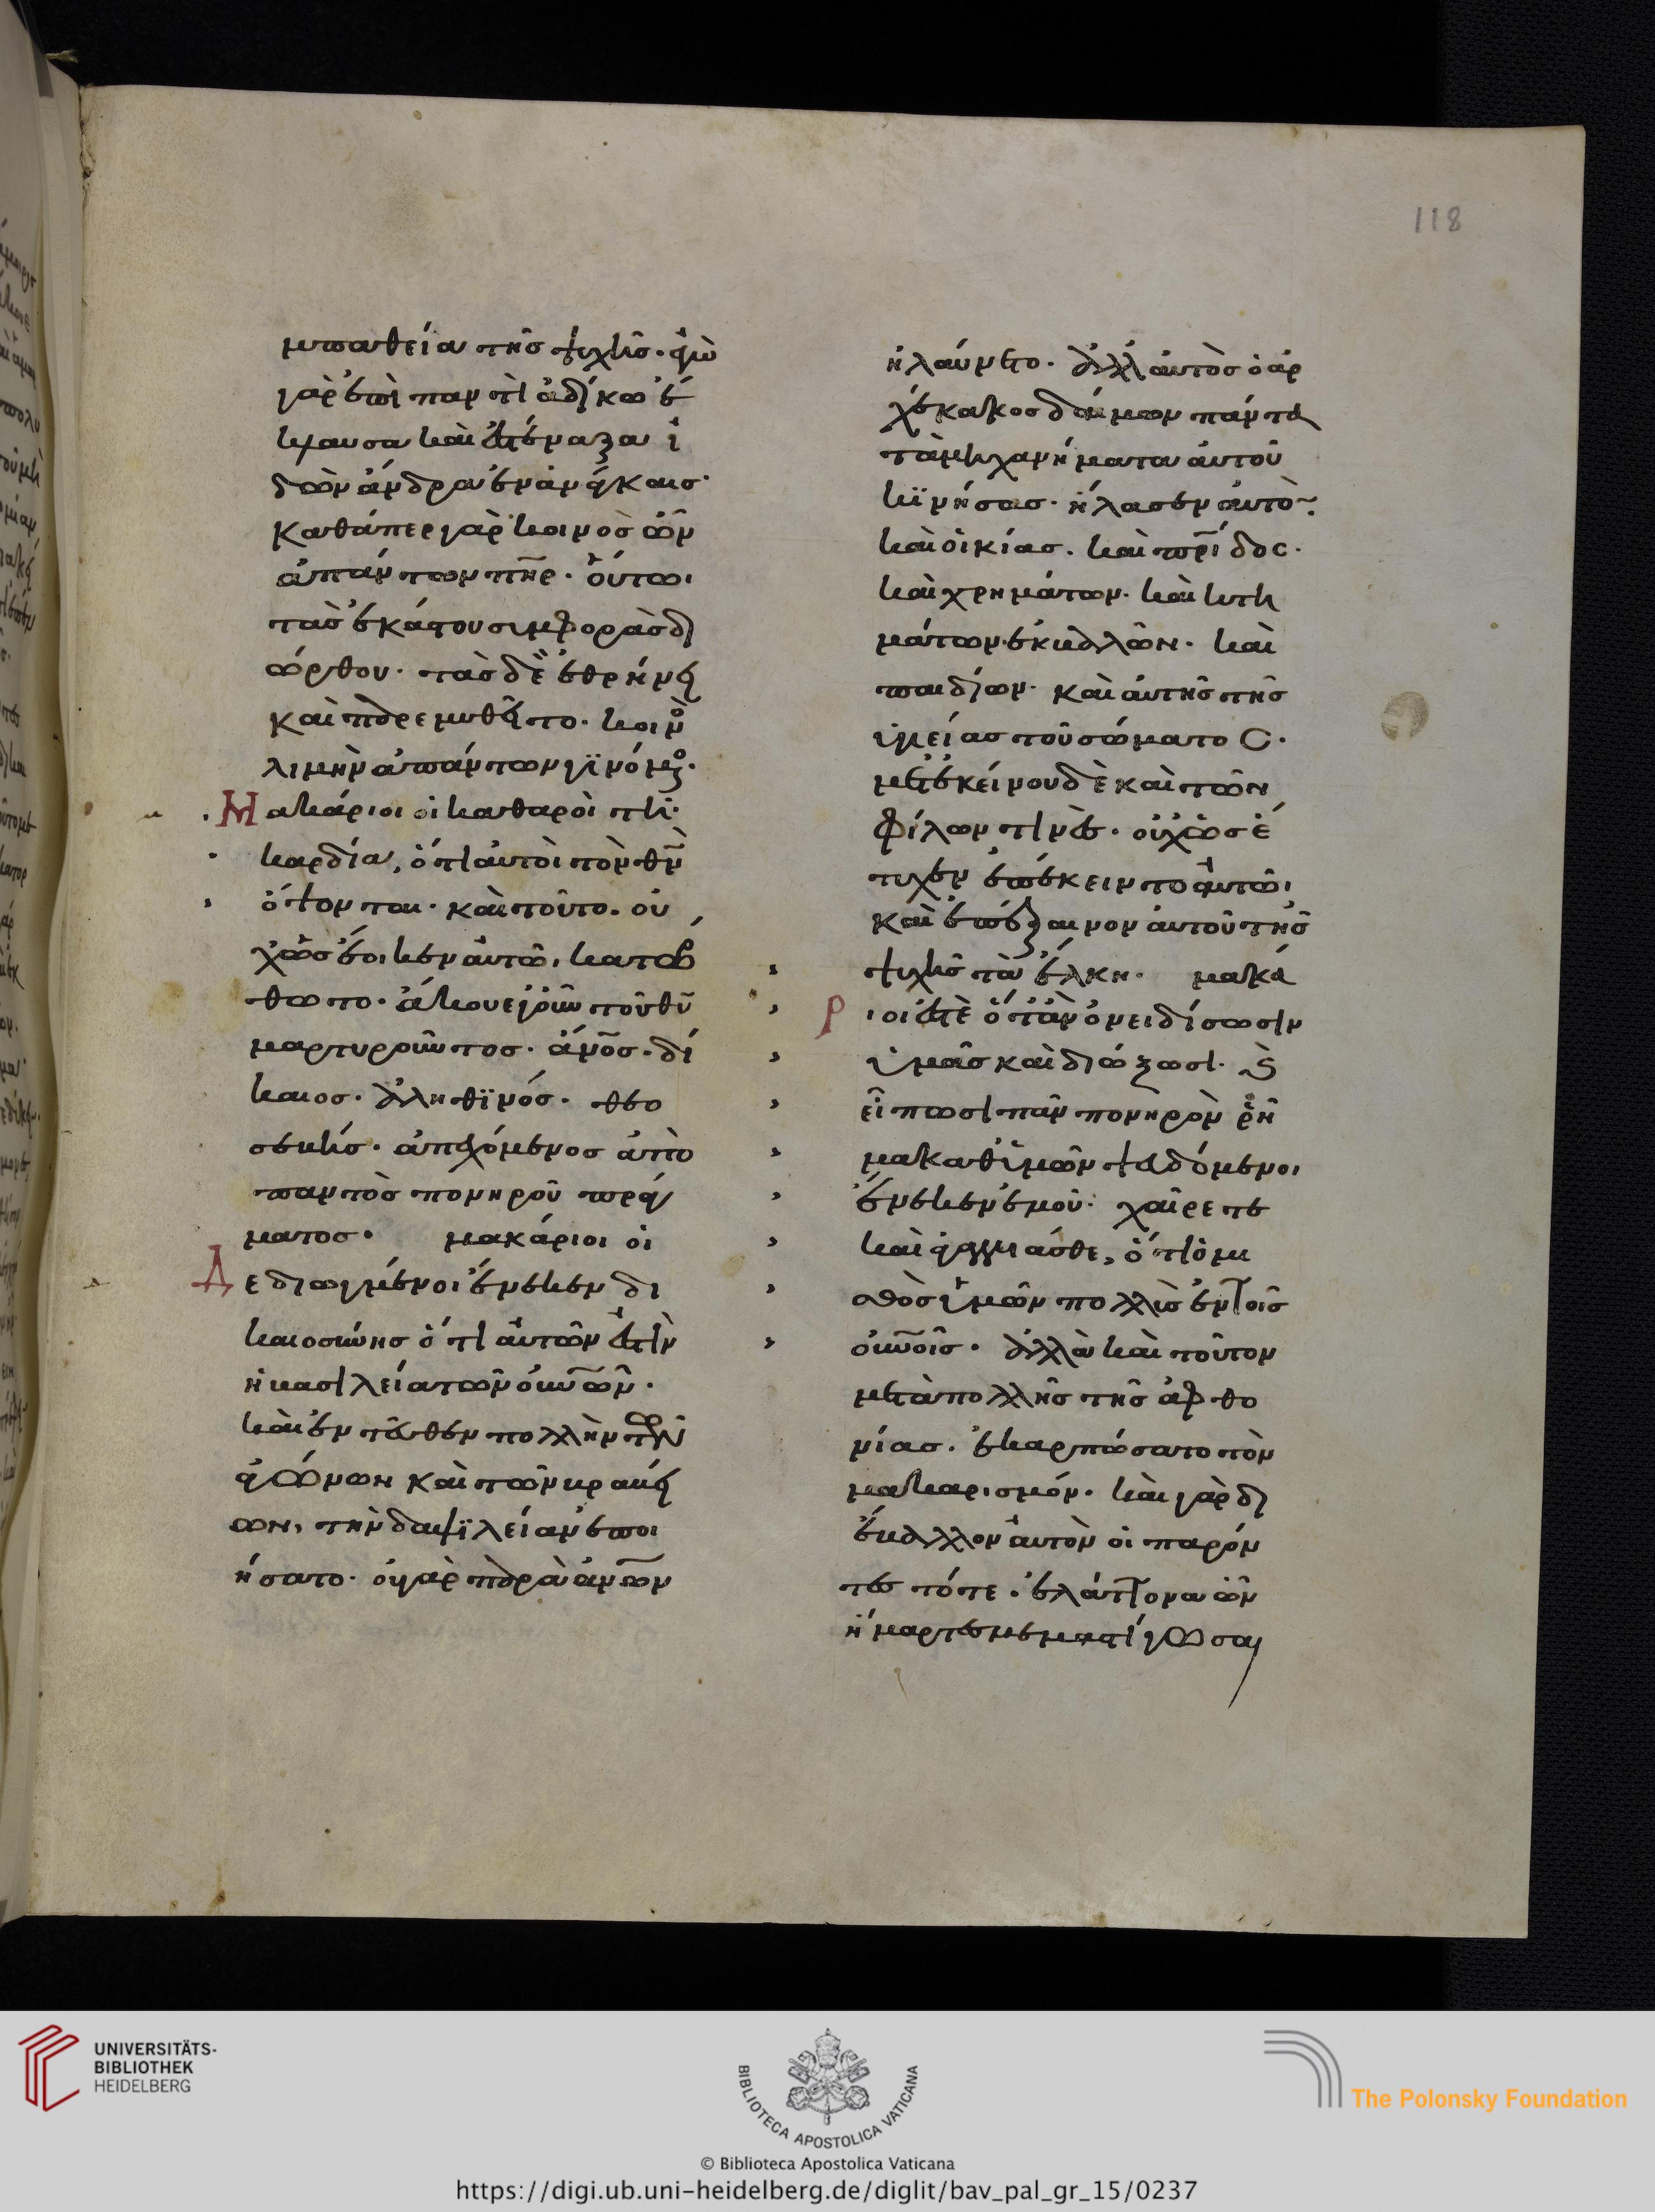 118
μπαθεία τῆς ψυχῆς· ἐγὼ
γὰρ ἐπὶ παντὶ ἀδικω ἔ
κλαυσα καὶ ἐστέναξα ἰ
δὼν ἄνδρα ἐν ἀνάγκαις·
καθάπερ γὰρ κοινὸς ὢν
ἁπάντων πηρ· οὕτω
τὰς ἑκάστου συμφορὰς δι
ώρθου· τὰς δὲ ἐθρήνει
καὶ παρεμυθεῖτο· κοινὸς
λιμὴν ἁπάντων γινόμενος·
Μακάριοι οἱ καθαροὶ τῆι
καρδία, ὅτι αὐτοὶ τὸν θν
ὄψονται· καὶ τοῦτο. οὐ
χ ὡς ἔοικεν αὐτῶ, κατορ
θωτο· ἄκουε γοῦν τοῦ θυ
μαρτυροῦντος· ἀνος· δί
καιος· ἀληθινός· θεο
σεβής· ἀπεχόμενος ἀπὸ
παντὸς πονηροῦ πράγ
ματος· μακάριοι οἱ
Δεδιωγμένοι ἕνεκεν δι
καιοσύνης ὅτι αὐτῶν ἐστιν
ἡ βασιλεία τῶν οὐνῶν·
καὶ ἐντεῦθεν πολλὴν τῶν
ἀγώνων καὶ τῶν βραβεί
ων, τὴν δαψίλειαν ἐποι
ήσατο· οὐ γὰρ παρὰ ἀνων
ἠλαύνετο· ἀλλ αὐτὸς ὁ ἀρ
χέκακος δαίμων πάντα
τὰ μηχανήματα αὐτοῦ
κινήσας· ἤλασεν αὐτὸν·
καὶ οἰκίας· καὶ πρίδος·
καὶ χρημάτων· καὶ κτη
μάτων· ἐκβαλὼν· καὶ
παιδίων· καὶ αὐτῆς τῆς
ὑγιείας τοῦ σώματος·
μετ ἐκείνου δὲ καὶ τῶν
φίλων τινὲς· οὐχ ὡς ἔ
τυχεν ἐπέκειντο αὐτῶι
καὶ ἐπέξαινον αὐτοῦ τῆς
ψυχῆς τὰ ἕλκη· μακά
ριοι ἐστὲ ὅταν ὀνειδίσωσιν
ὑμᾶς καὶ διώξωσι· καὶ
εἴπωσι πᾶν πονηρὸν ῥῆ
μα καθ ὑμῶν ψευδόμενοι
ἕνεκεν ἐμοῦ· χαίρετε
καὶ ἀγαλλιᾶσθε, ὅτι ὁ μι
σθὸς ὑμῶν πολλὺς ἐν τοῖς
οὐνοῖς· ἀλλὰ καὶ τοῦτον
μετὰ πολλῆς τῆς ἀφθο
νίας· ἐκαρπώσατο τὸν
μακαρισμόν· καὶ γὰρ δι
έβαλλον αὐτὸν οἱ παρόν
τες τότε· ἐλάττονα ὧν
ἥμαρτες μεμαστίγωσαι
UNIVERSITÄTS-
BIBLIOTHEK
HEIDELBERG
BIBLIOTECA APOSTOLICA VATICANA
The Polonsky Foundation
© Biblioteca Apostolica Vaticana
https://digi.ub.uni-heidelberg.de/diglit/bav_pal_gr_15/0237